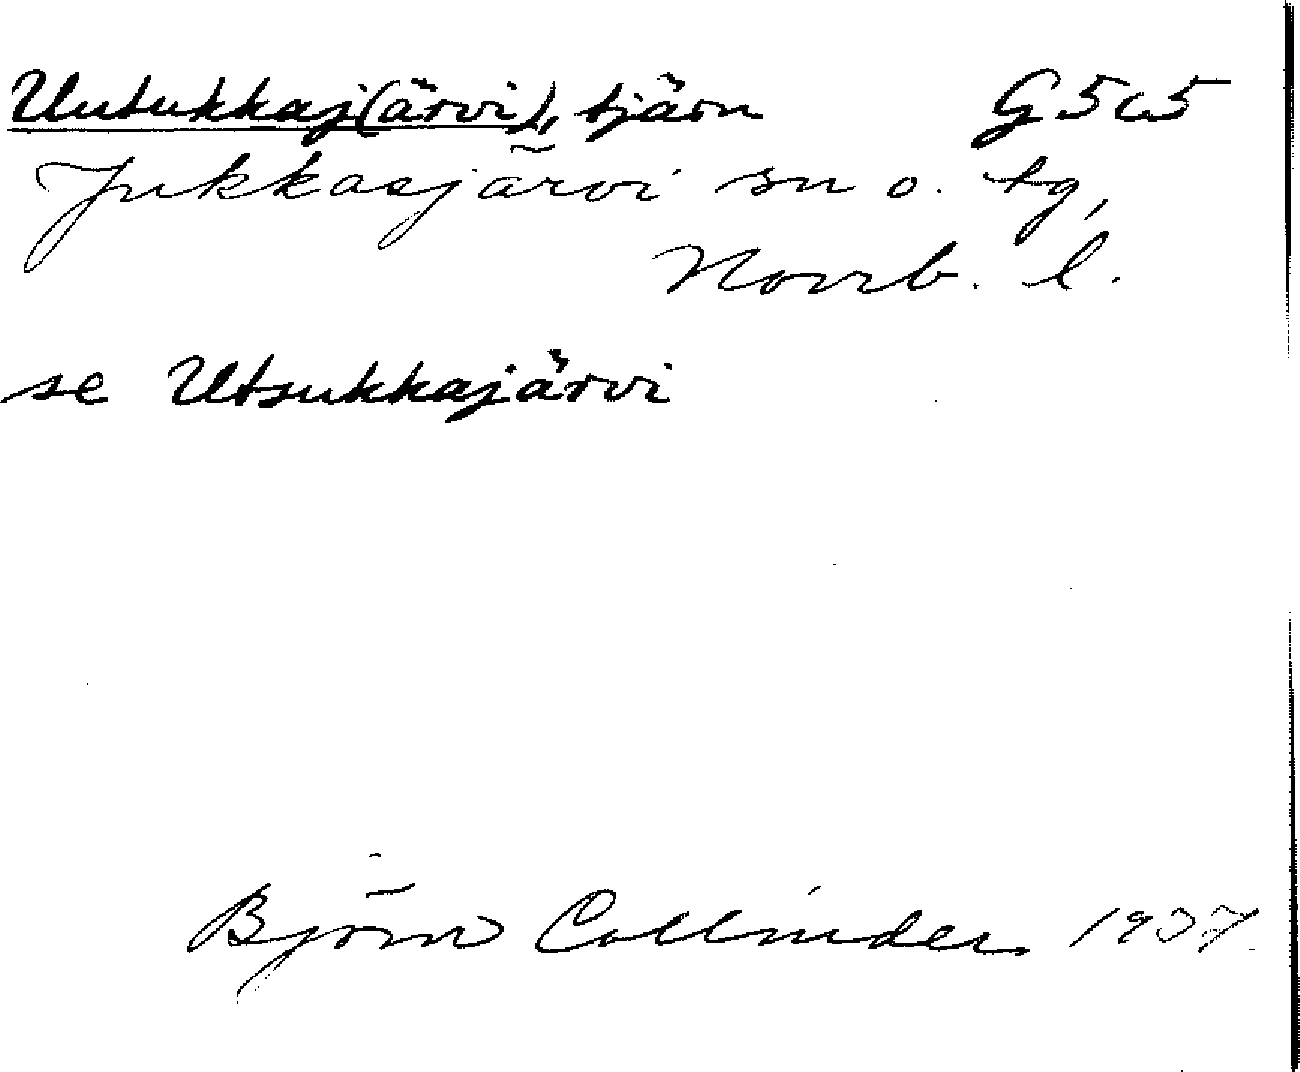 Uutukkaj(ärvi), tjärn G5c5
Jukkasjärvi sn o. tg,
Norrb. l.
se Utsukkajärvi
Björn Collinder 1937